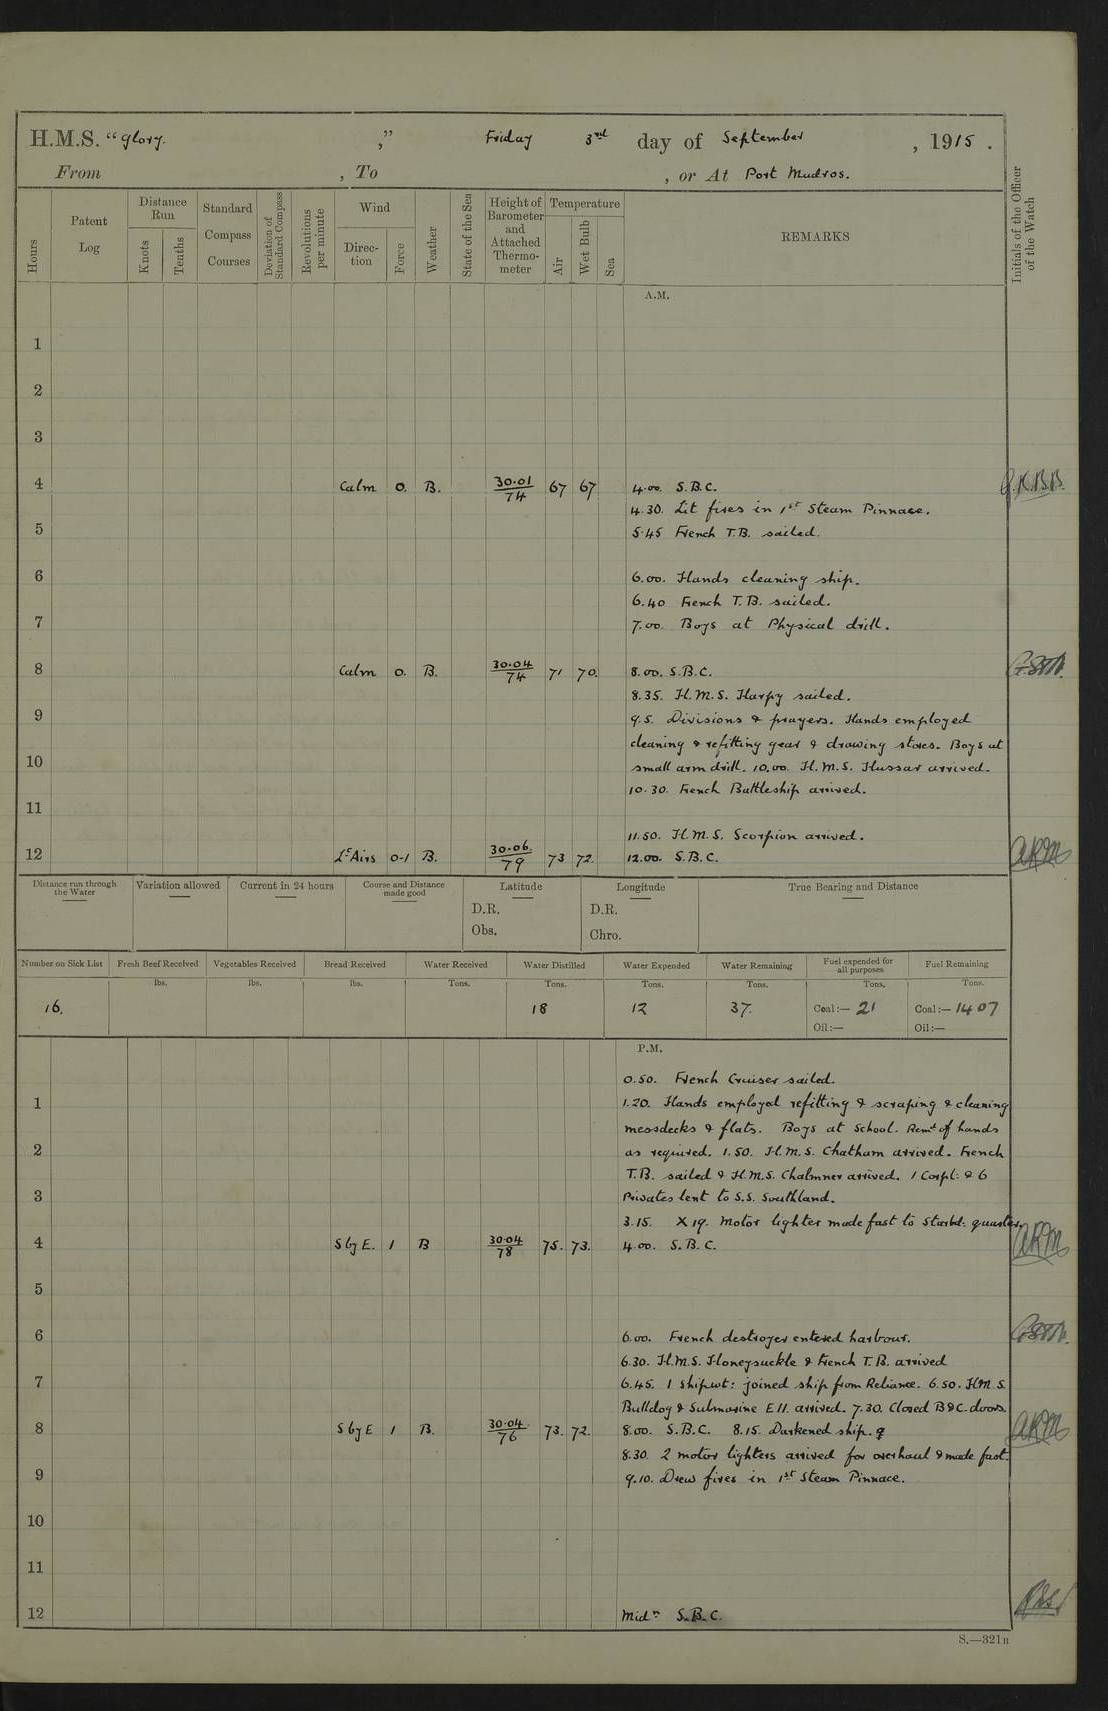 H.M.S. "Glory. ," Friday 3rd day of September , 1915 .
From , To , or At Port Mudros.
Hours
Patent Log
Distance Run
Knots
Tenths
Standard Compass Courses
Deviation of Standard Compass
Revolutions per minute
Wind
Direc-tion
Force
Weather
State of the Sea
Height of Barometer and Attached Thermo-meter
Temperature
Air
Wet Bulb
Sea
REMARKS
Initials of the Officer of the Watch
A.M.
1
2
3
4 Calm 0. B. 30.01/74 67 67 4.00. S.B.C. G.K.B.B.
4.30. Lit fires in 1st Steam Pinnace.
5 5.45 French T.B. sailed.
6 6.00. Hands cleaning ship.
6.40 French T.B. sailed.
7 7.00. Boys at Physical drill.
8 Calm 0. B. 30.04/74 71 70. 8.00. S.B.C.
8.35. H.M.S. Harpy sailed.
9 9.5. Divisions & prayers. Hands employed
cleaning & refitting gear & drawing stores. Boys at
10 small arm drill. 10.00. H.M.S. Hussar arrived.
10.30. French Battleship arrived.
11
11.50. H.M.S. Scorpion arrived.
12 Lt Airs 0-1 B. 30.06./79 73 72. 12.00. S.B.C. ARM
Distance run through the Water
Variation allowed
Current in 24 hours
Course and Distance made good
Latitude
D.R.
Obs.
Longitude
D.R.
Chro.
True Bearing and Distance
Number on Sick List Fresh Beef Received Vegetables Received Bread Received Water Received Water Distilled Water Expended Water Remaining Fuel expended for all purposes Fuel Remaining
lbs. lbs. lbs. Tons. Tons. Tons. Tons. Tons. Tons.
16. 18 12 37. Coal:— 21 Coal:— 1407
Oil:— Oil:—
P.M.
0.50. French Cruiser sailed.
1 1.20. Hands employed refitting & scraping & cleaning
messdecks & flats. Boys at School. Remdr of hands
2 as required. 1.50. H.M.S. Chatham arrived. French
T.B. sailed & H.M.S. Chalmner arrived. 1 Corpl: & 6
3 Privates lent to S.S. Southland.
3.15. X 19. Motor lighter made fast to Starbd: quarter.
4 S by E. 1 B 30.04/78 75. 73. 4.00. S.B.C. ARM
5
6 6.00. French destroyer entered harbour.
6.30. H.M.S. Honeysuckle & French T.B. arrived
7 6.45. 1 Shipwt: joined ship from Reliance. 6.50. H.M.S.
Bulldog & Submarine E11. arrived. 7.30. Closed B&C. doors.
8 S by E 1 B. 30.04./76 73. 72. 8.00. S.B.C. 8.15. Darkened ship. ARM
8.30. 2 motor lighters arrived for overhaul & made fast.
9 9.10. Drew fires in 1st Steam Pinnace.
10
11
12 Midn S.B.C.
S.—321n